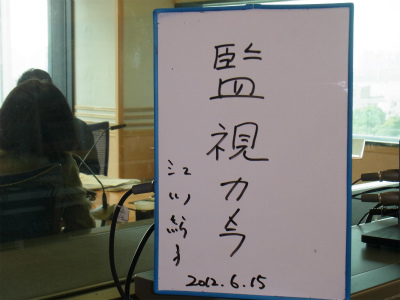 監視カメラ
江川紹子
2012.6.15